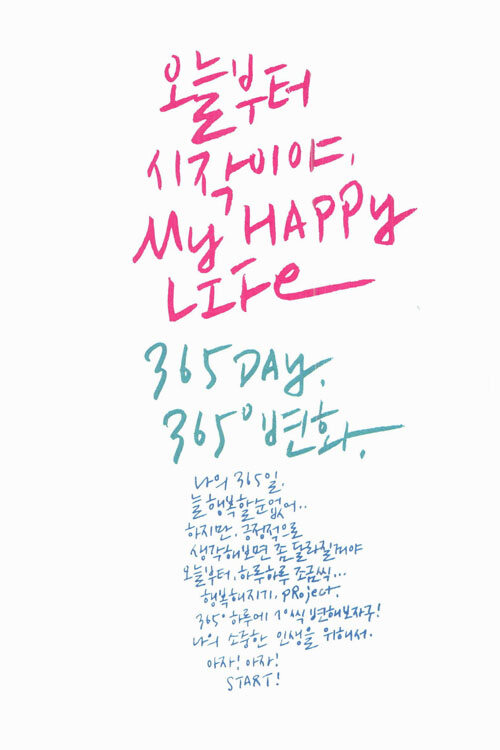 오늘부터
시작이야.
My HAPPy
LIFe
365 DAY.
365° 변화.
나의 365일.
늘 행복할순없어..
하지만, 긍정적으로
생각해보면 좀 달라질거야
오늘부터, 하루하루 조금씩...
행복해지기. pRoject.
365° 하루에 1°씩 변해보자구!
나의 소중한 인생을 위해서.
아자! 아자!
START!